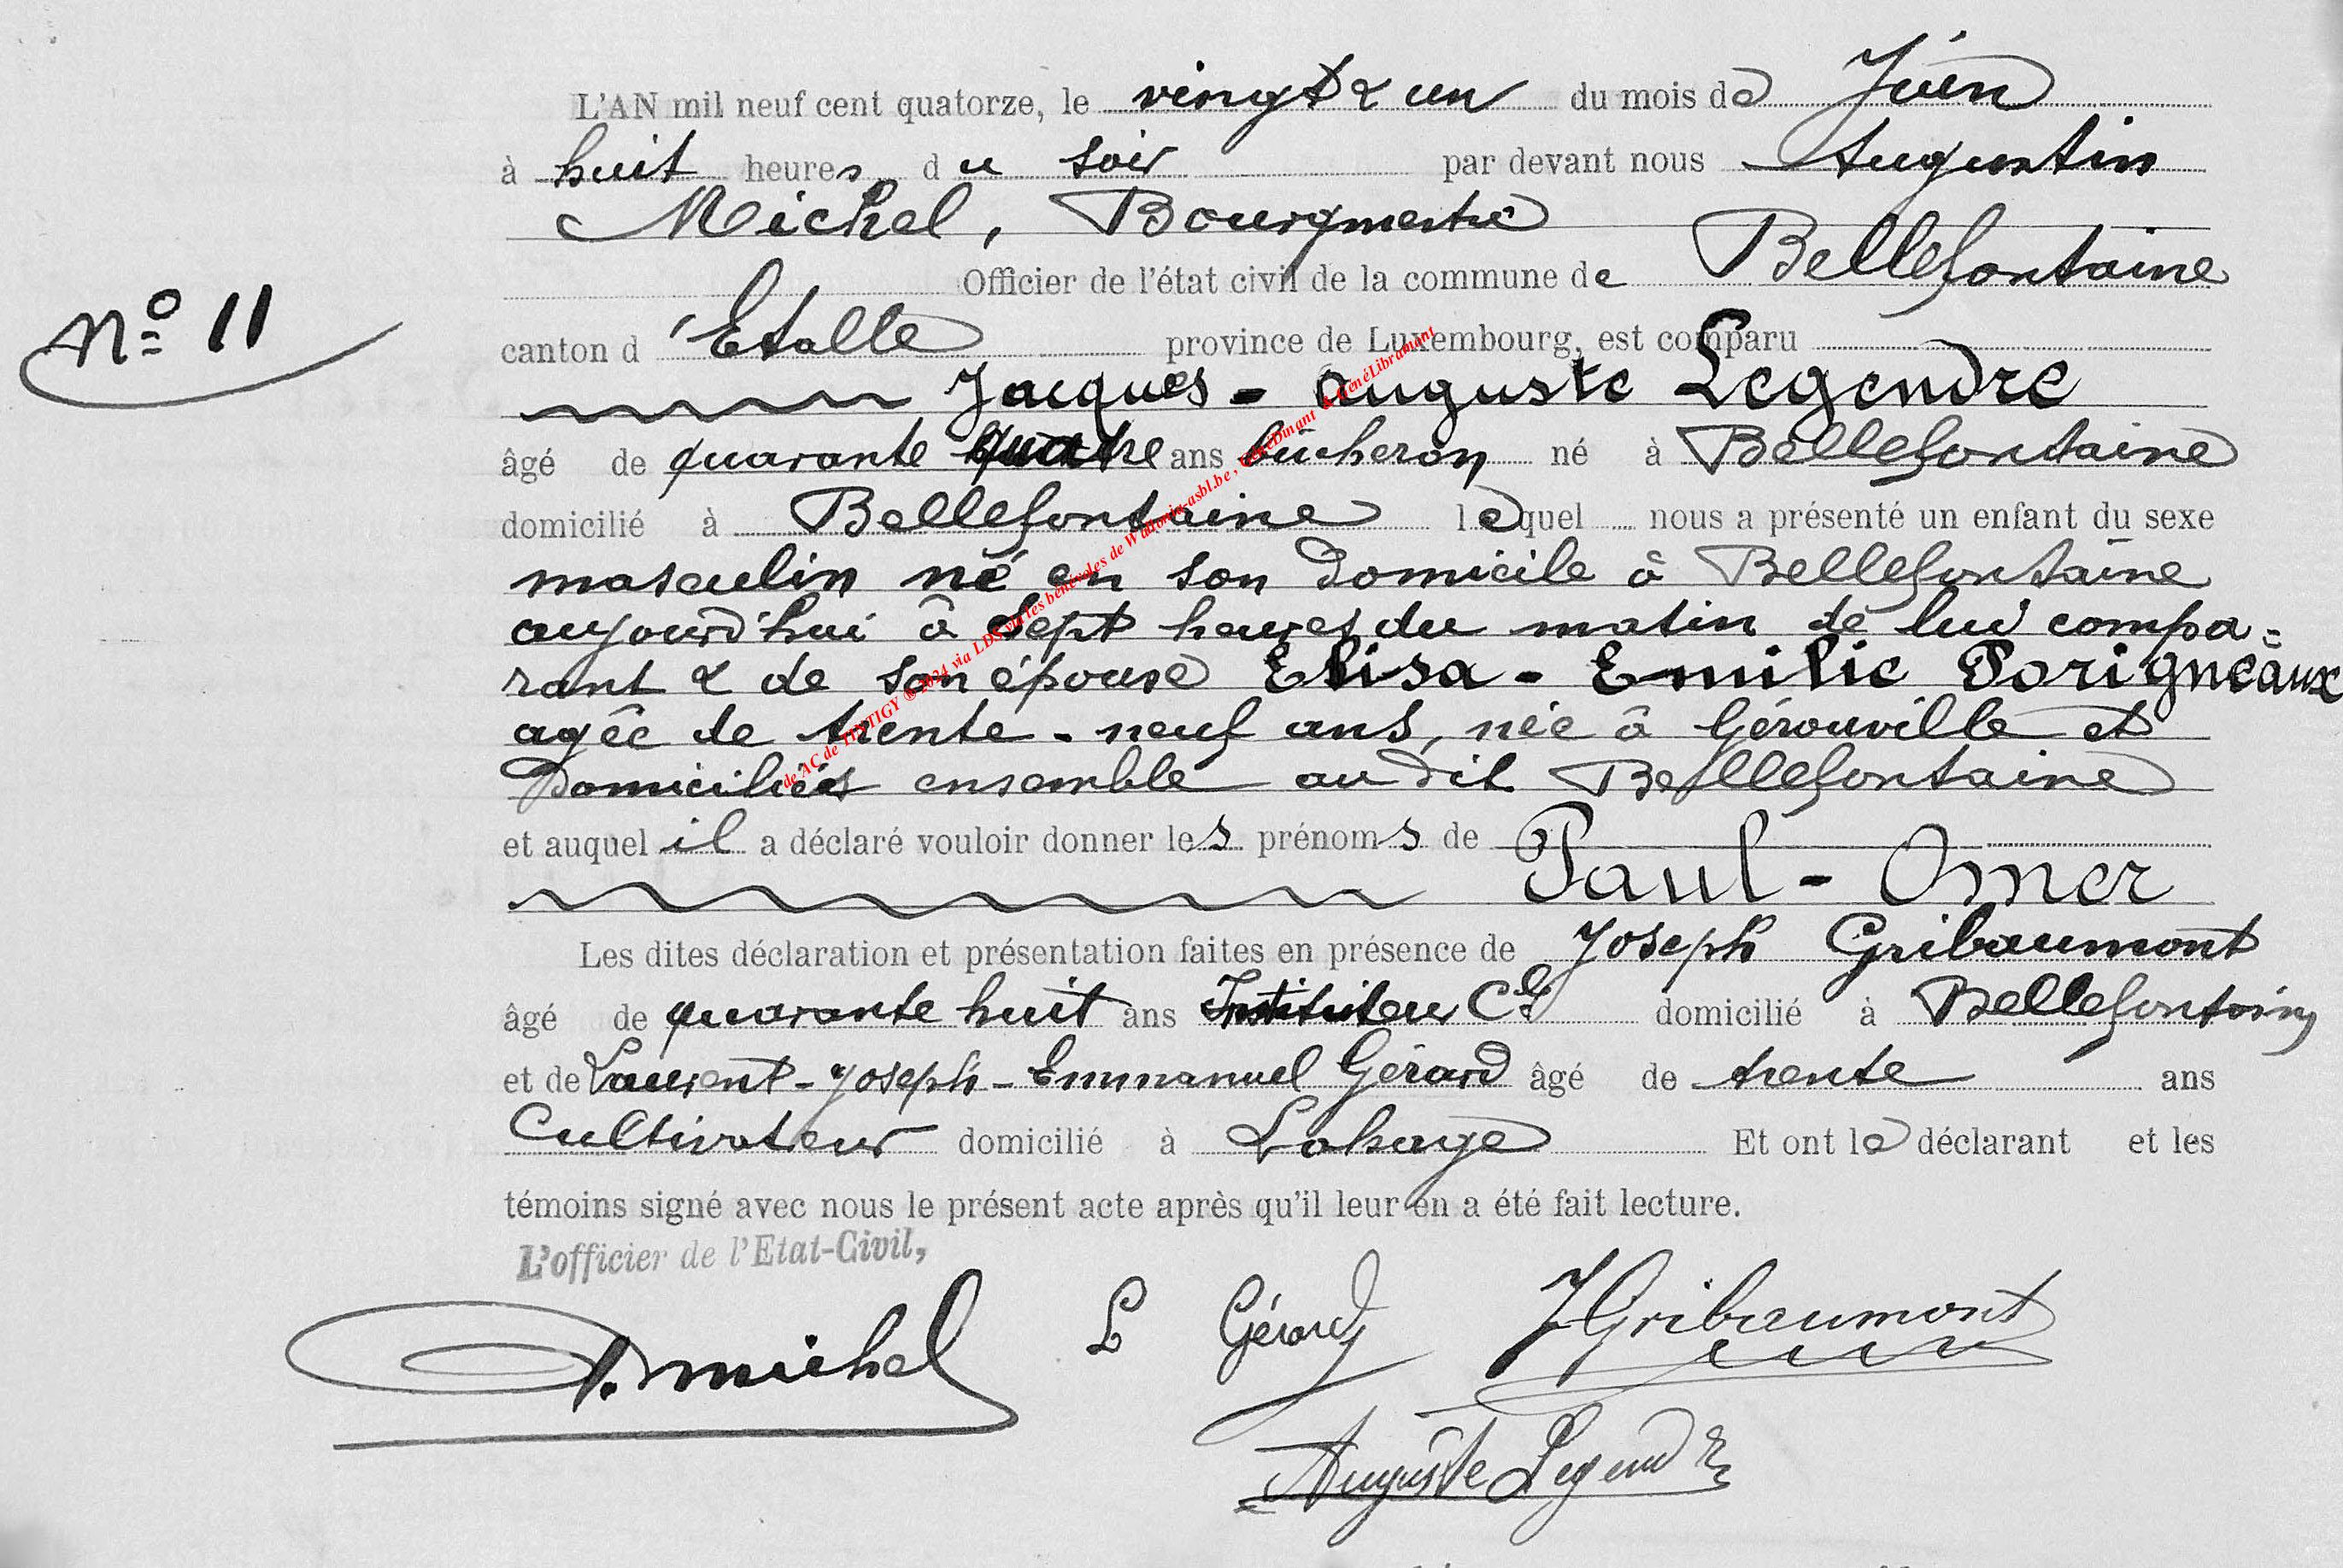 L'AN mil neuf cent quatorze, le vingt & un du mois de Juin
à huit heures du soir par devant nous Augustin
Michel, Bourgmestre
Officier de l'état civil de la commune de Bellefontaine
N° 11
canton d'Etalle province de Luxembourg, est comparu
Jacques - Auguste Legendre
âgé de quarante quatre ans bûcheron né à Bellefontaine
domicilié à Bellefontaine lequel nous a présenté un enfant du sexe
masculin né en son domicile à Bellefontaine
aujourd'hui à sept heures du matin de lui compa=
rant & de son épouse Elisa - Emilie Porigneaux
agée de trente - neuf ans, née à Gérouville et
Domiciliés ensemble au dit Bellefontaine
et auquel il a déclaré vouloir donner les prénoms de
Paul - Omer
Les dites déclaration et présentation faites en présence de Joseph Gribaumont
âgé de quarante huit ans Instituteur Cal domicilié à Bellefontaine
et de Laurent - Joseph - Emmanuel Gérard âgé de trente ans
Cultivateur domicilié à Lahage Et ont le déclarant et les
témoins signé avec nous le présent acte après qu'il leur en a été fait lecture.
L'officier de l'Etat-Civil,
A. Michel L Gérard J Gribaumont
Auguste Legendre
de AC de TINTIGY © 2024 via LDS via les bénévoles de Wallonia-asbl.be, GénéDinant & GénéLibramont